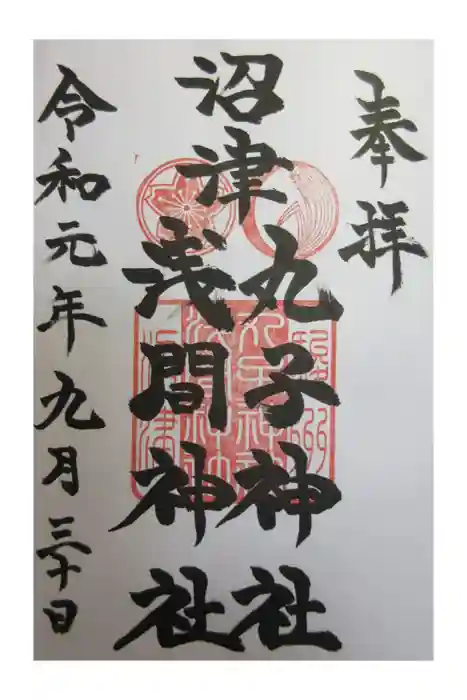 奉拝
沼津
丸子神社
浅間神社
令和元年九月三十日